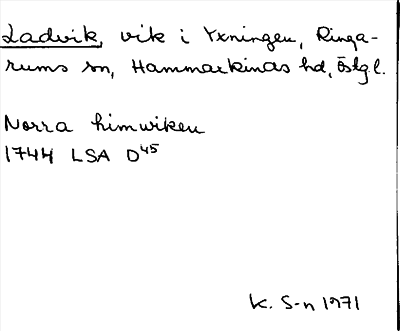 Ladvik, vik i Yxningen, Ringa-
rums sn, Hammarkinds hd, Östgl.
Norra himwiken
1744 LSA D45
K. S-n 1971